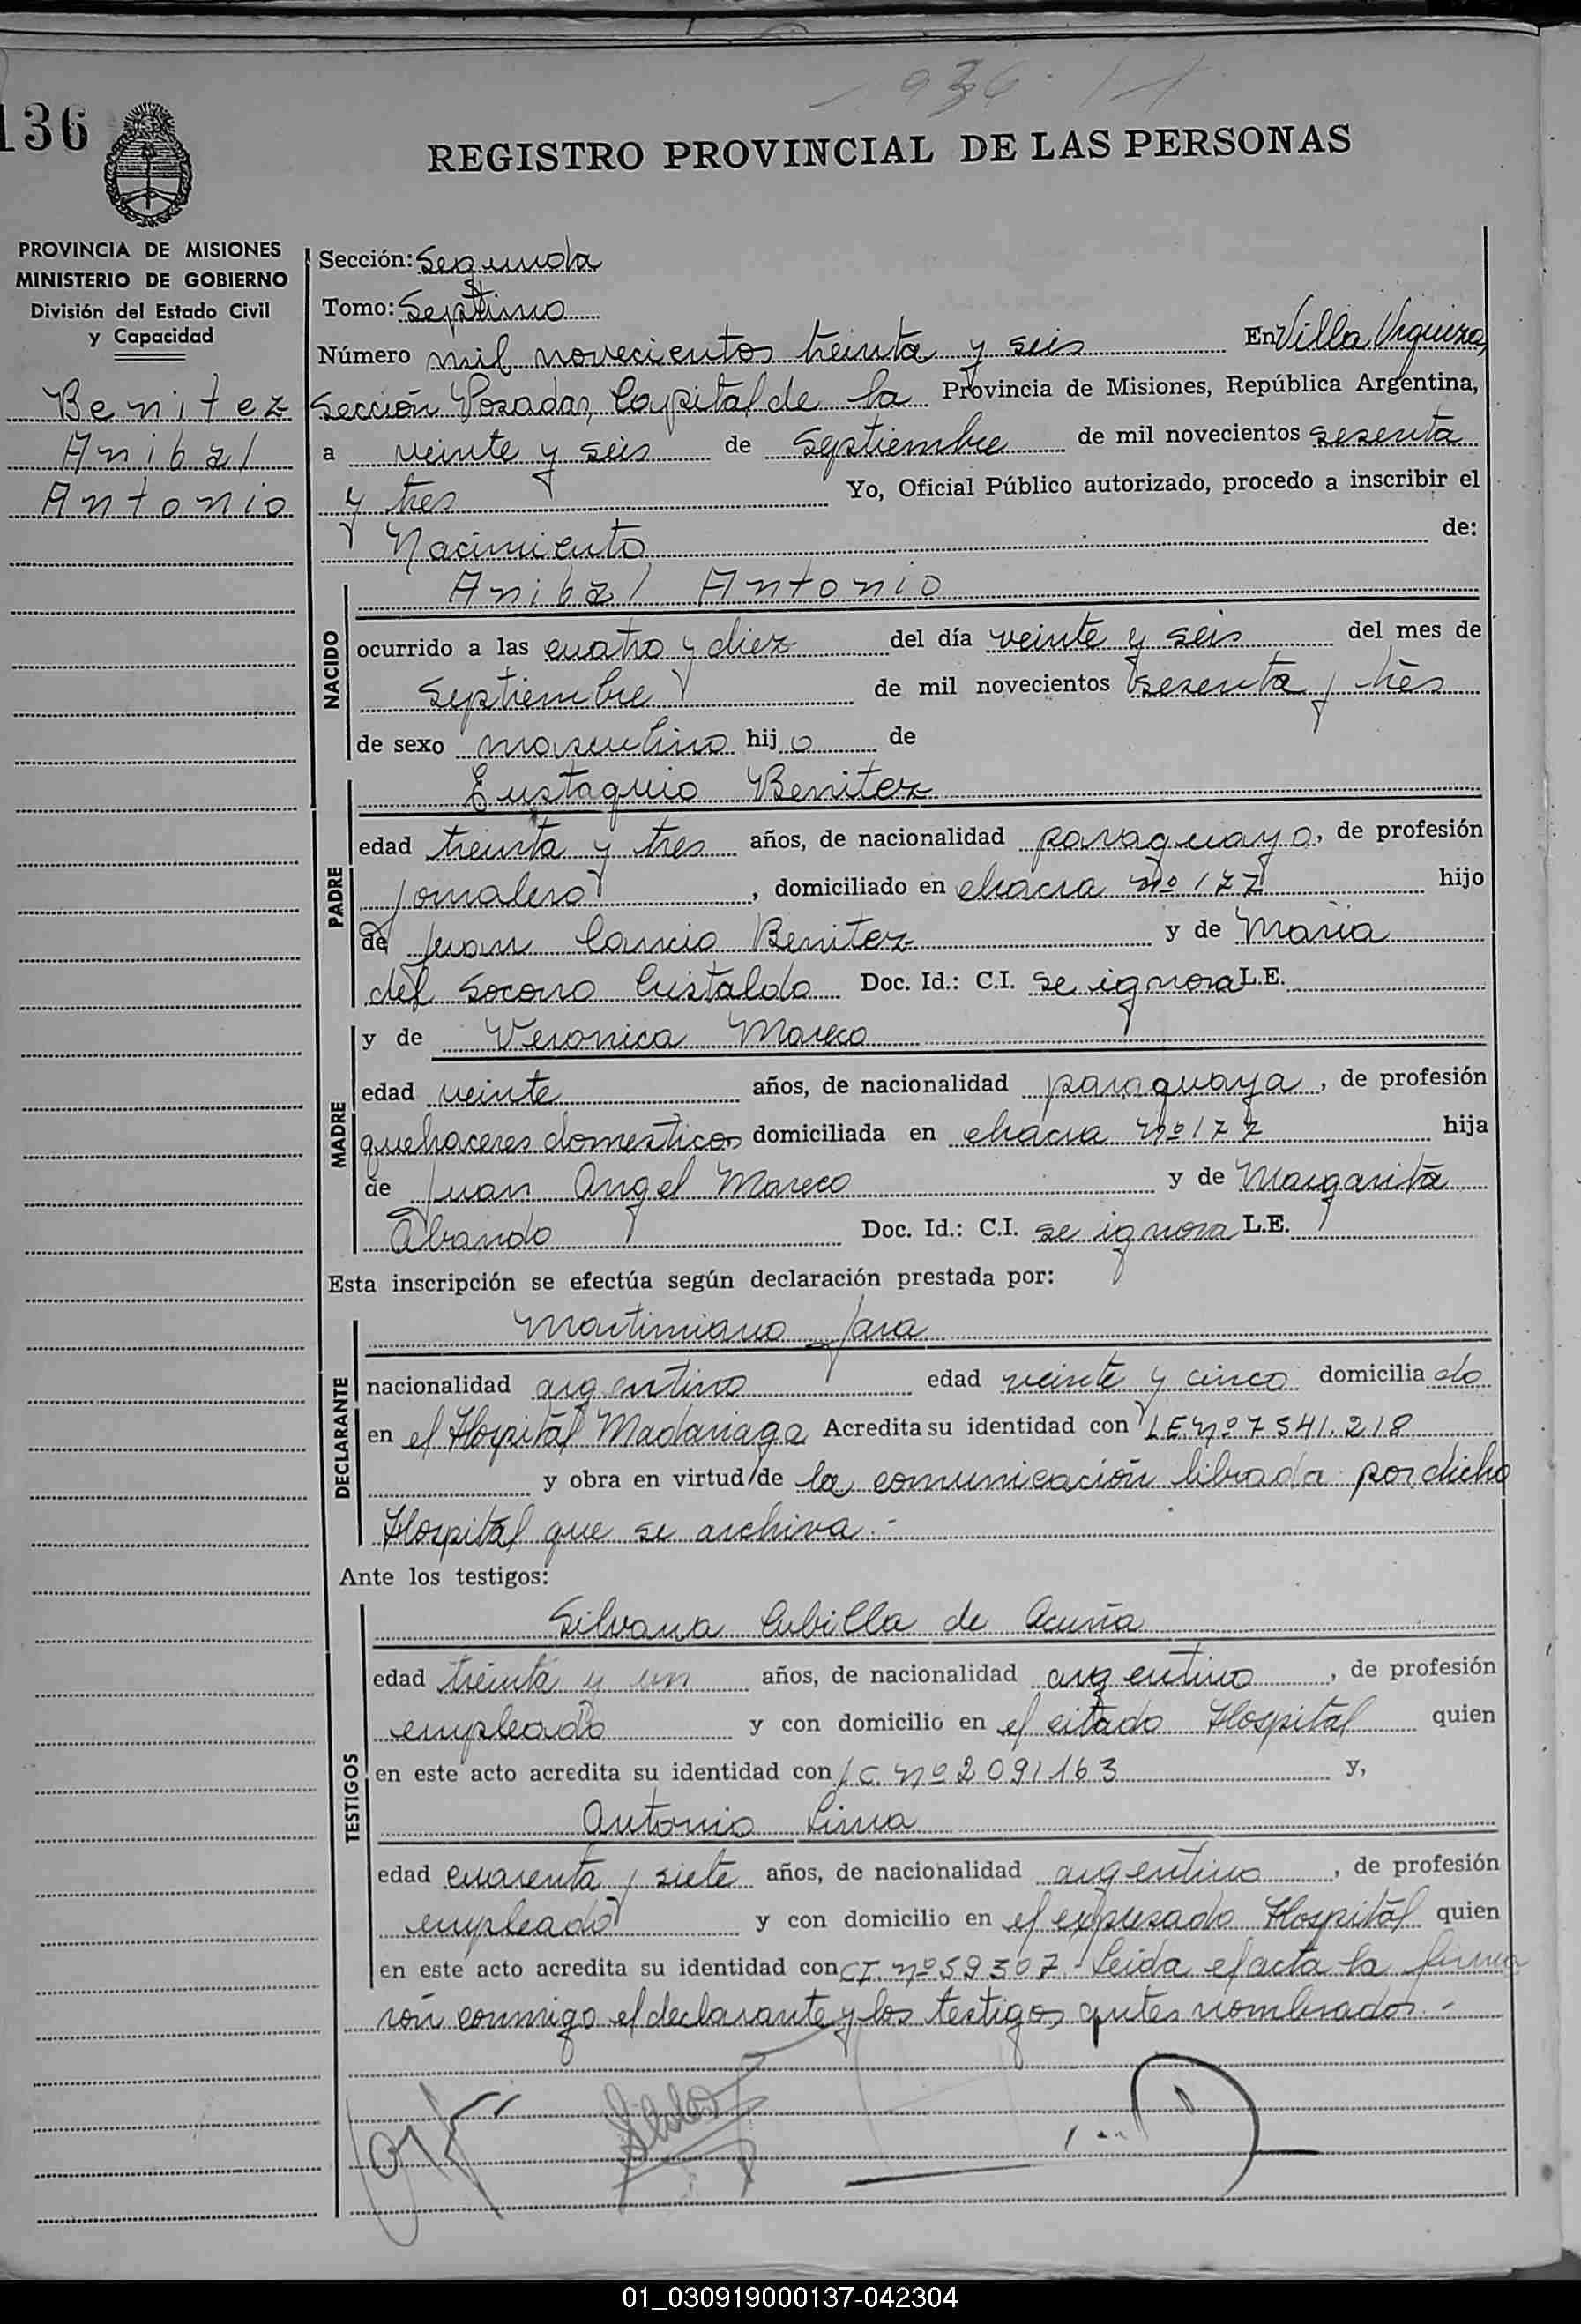 936
136
REGISTRO PROVINCIAL DE LAS PERSONAS
PROVINCIA DE MISIONES
MINISTERIO DE GOBIERNO
División del Estado Civil
y Capacidad
Benitez
Anibal
Antonio
Sección: Segunda
Tomo: Septimo
Número mil novecientos treinta y seis En Villa Urquiza,
Sección Posadas, Capital de la Provincia de Misiones, República Argentina,
a veinte y seis de Septiembre de mil novecientos sesenta
y tres Yo, Oficial Público autorizado, procedo a inscribir el
Nacimiento de:
NACIDO
Anibal Antonio
ocurrido a las cuatro y diez del día veinte y seis del mes de
Septiembre de mil novecientos sesenta y tres
de sexo masculino hijo de
PADRE
Eustaquio Benitez
edad treinta y tres años, de nacionalidad paraguayo, de profesión
jornalero, domiciliado en chacra nº 177 hijo
de Juan Cancio Benitez y de Maria
del Socorro Cristaldo Doc. Id.: C.I. se ignora L.E.
MADRE
y de Veronica Mareco
edad veinte años, de nacionalidad paraguaya, de profesión
quehaceres domesticos domiciliada en chacra nº 177 hija
de Juan Angel Mareco y de Margarita
Obando Doc. Id.: C.I. se ignora L.E.
Esta inscripción se efectúa según declaración prestada por:
DECLARANTE
Martimiano Jara
nacionalidad argentino edad veinte y cinco domiciliado
en el Hospital Madariaga Acredita su identidad con L.E. nº 7541.218
y obra en virtud de la comunicación librada por dicho
Hospital que se archiva.-
Ante los testigos:
TESTIGOS
Silvana Cubilla de Acuña
edad treinta y un años, de nacionalidad argentino, de profesión
empleado y con domicilio en el citado Hospital quien
en este acto acredita su identidad con L.C. nº 2091163 y,
Antonio Lima
edad cuarenta y siete años, de nacionalidad argentino, de profesión
empleado y con domicilio en el expresado Hospital quien
en este acto acredita su identidad con C.I. nº 59307.- Leida el acta la firma
ron conmigo el declarante y los testigos antes nombrados.-
01_030919000137-042304